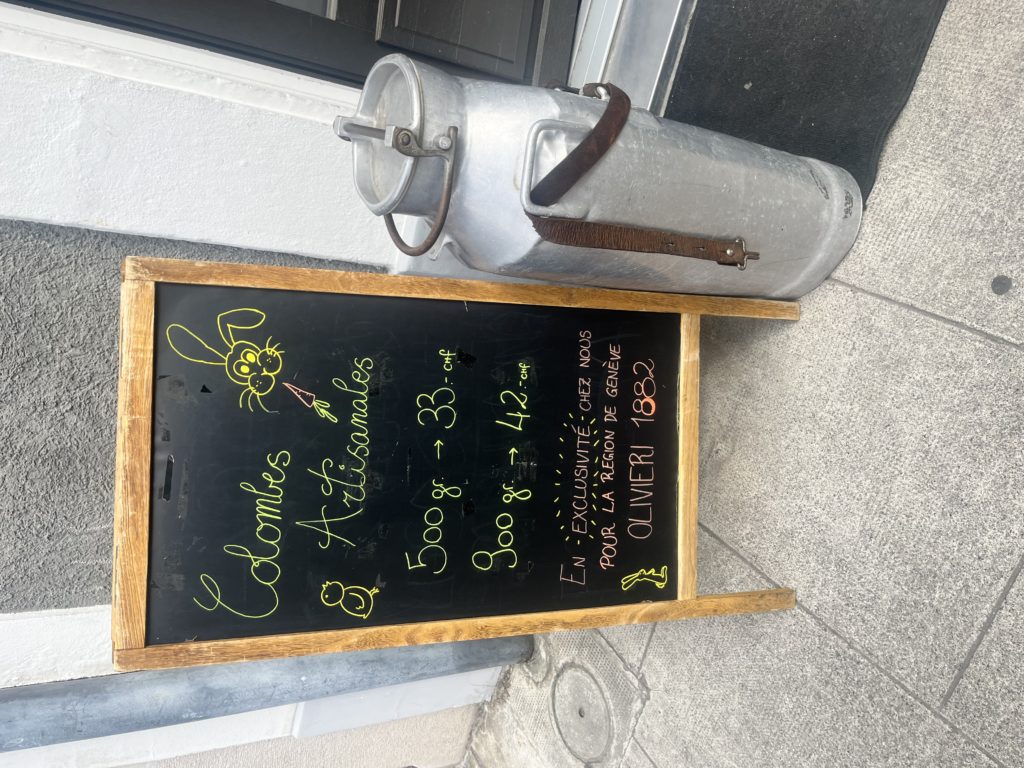 Colombes
Artisanales
500 gr. → 33.- CHF
900 gr. → 42.- CHF
EN EXCLUSIVITÉ CHEZ NOUS
POUR LA RÉGION DE GENÈVE
OLIVIERI 1882